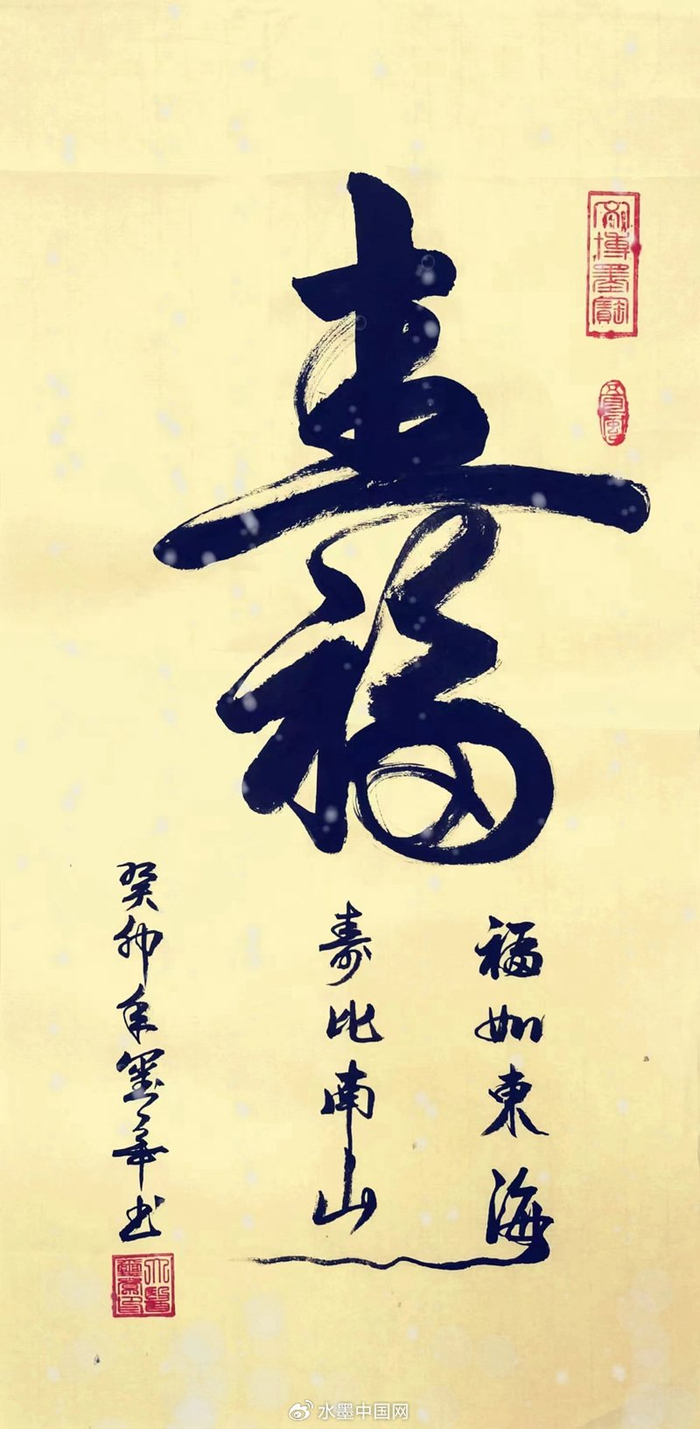 寿福
福如東海
寿比南山
癸卯年墨華书
水墨中国网